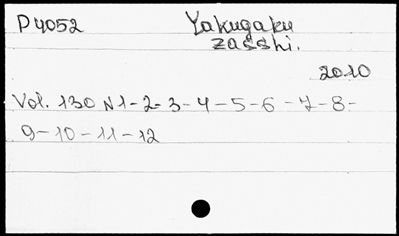 P4052 Yakugaku
zasshi.
2010
Vol. 130 N 1-2-3-4-5-6-7-8-
9-10-11-12